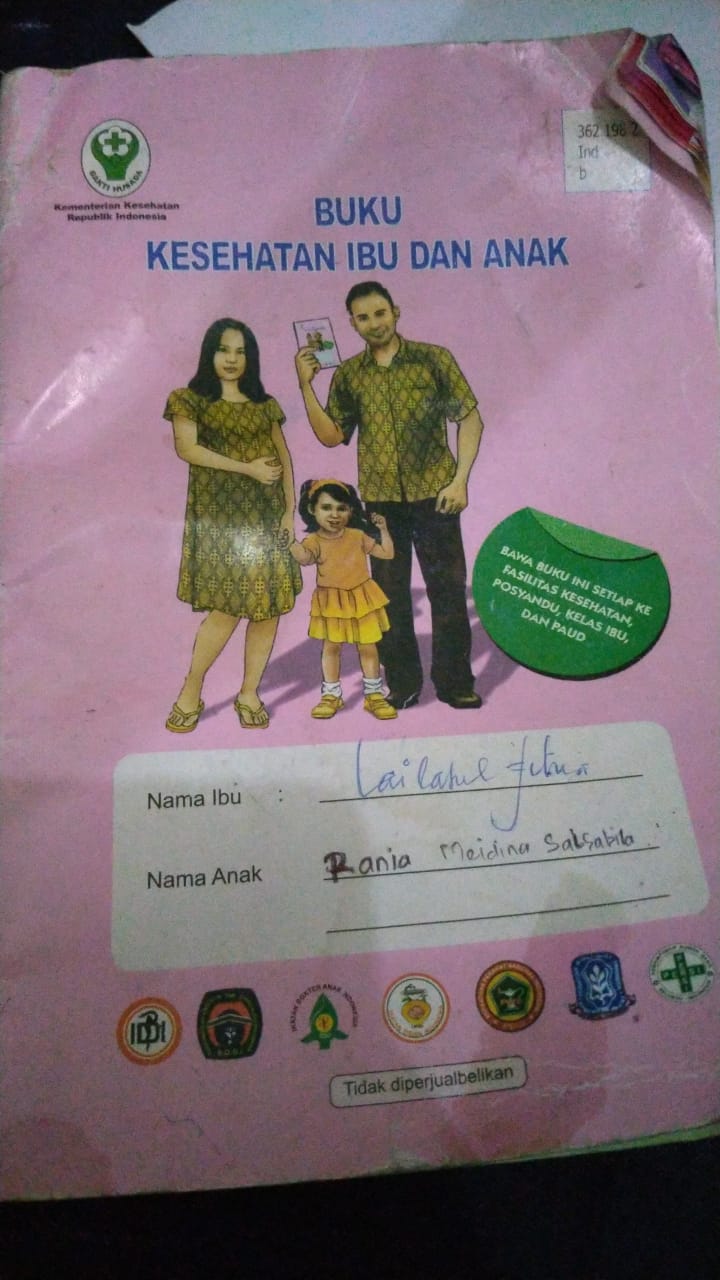 BAKTI HUSADA
Kementerian Kesehatan
Republik Indonesia
362 198 2
Ind
b
BUKU
KESEHATAN IBU DAN ANAK
BAWA BUKU INI SETIAP KE
FASILITAS KESEHATAN,
POSYANDU, KELAS IBU,
DAN PAUD
Nama Ibu : Lailatul Fitria
Nama Anak Rania Meidina Salsabila
IDI
IKATAN DOKTER ANAK INDONESIA
PERSI
Tidak diperjualbelikan